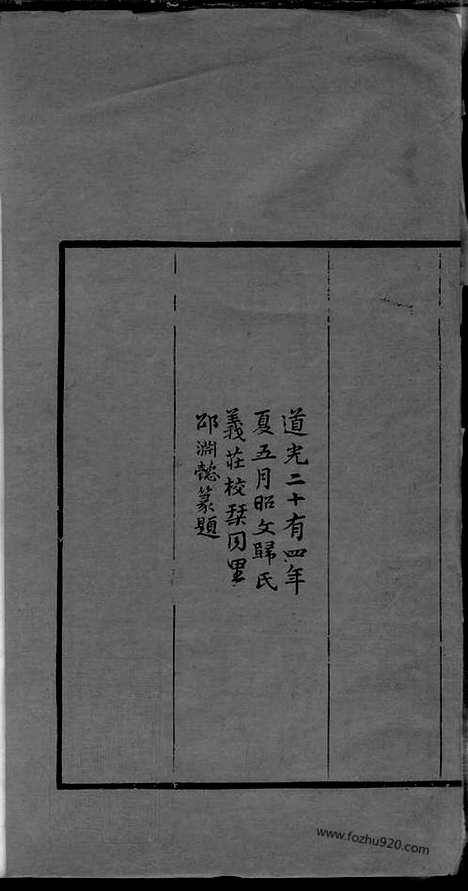 道光二十有四年
夏五月昭文歸氏
義莊校栞同里
邵淵懿篆題
www.fozhu920.com